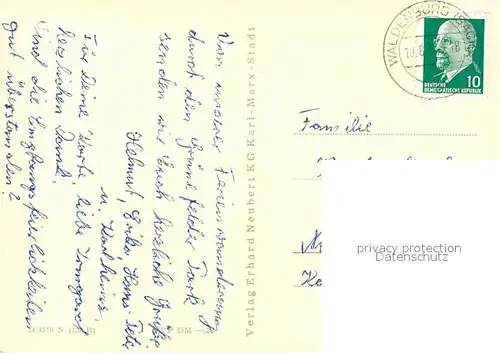 Von unserer Ferienwanderung
durch den Grünefelder Park
senden wir Euch herzliche Grüße
Helmut, Erika, Hans-
u. Karlheinz.
Für Deine Karte, liebe Irmgard
herzlichen Dank.
Sind die Empfangsfeierlichkeiten
gut überstanden?
Verlag Erhard Neubert KG Karl-Marx-Stadt
DM
WALDENBURG (SACHS)
DEUTSCHE
DEMOKRATISCHE REPUBLIK
10
Familie
privacy protection
Datenschutz